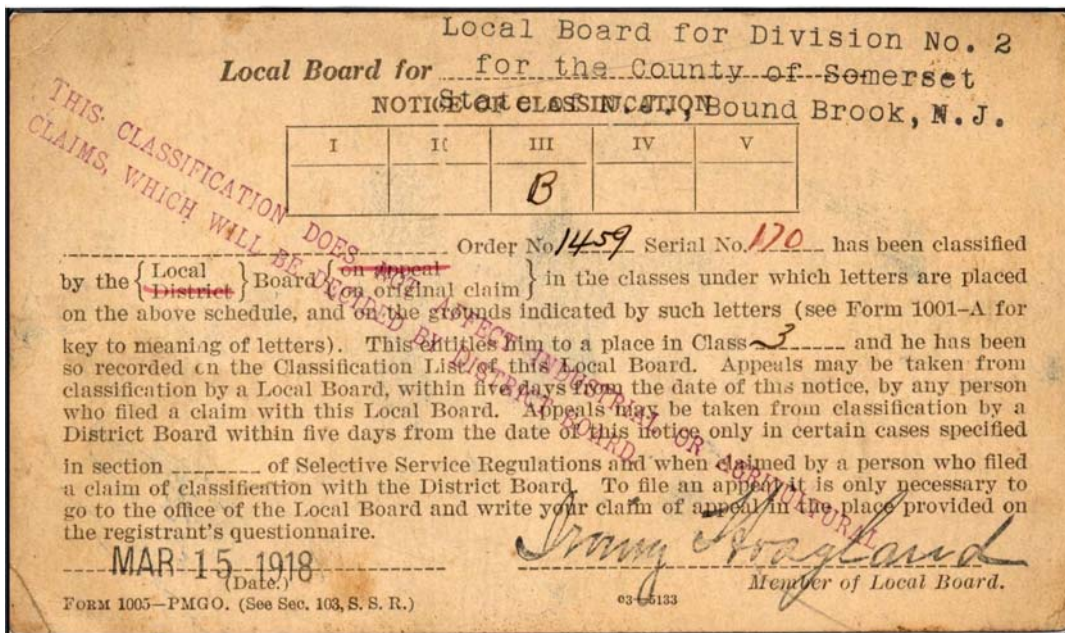 Local Board for Division No. 2
Local Board for for the County of Somerset
NOTICE OF CLASSIFICATION
State of N.J., Bound Brook, N.J.
I II III IV V
B
THIS CLASSIFICATION DOES NOT AFFECT INDUSTRIAL OR AGRICULTURAL
CLAIMS, WHICH WILL BE DECIDED BY DISTRICT BOARD.
Order No. 1459 Serial No. 170 has been classified
by the { Local District } Board { on appeal on original claim } in the classes under which letters are placed
on the above schedule, and on the grounds indicated by such letters (see Form 1001–A for
key to meaning of letters). This entitles him to a place in Class 3 and he has been
so recorded on the Classification List of this Local Board. Appeals may be taken from
classification by a Local Board, within five days from the date of this notice, by any person
who filed a claim with this Local Board. Appeals may be taken from classification by a
District Board within five days from the date of this notice only in certain cases specified
in section of Selective Service Regulations and when claimed by a person who filed
a claim of classification with the District Board. To file an appeal it is only necessary to
go to the office of the Local Board and write your claim of appeal in the place provided on
the registrant's questionnaire.
MAR 15 1918
(Date.)
Irving Hoagland
Member of Local Board.
FORM 1005—PMGO. (See Sec. 103, S. S. R.)